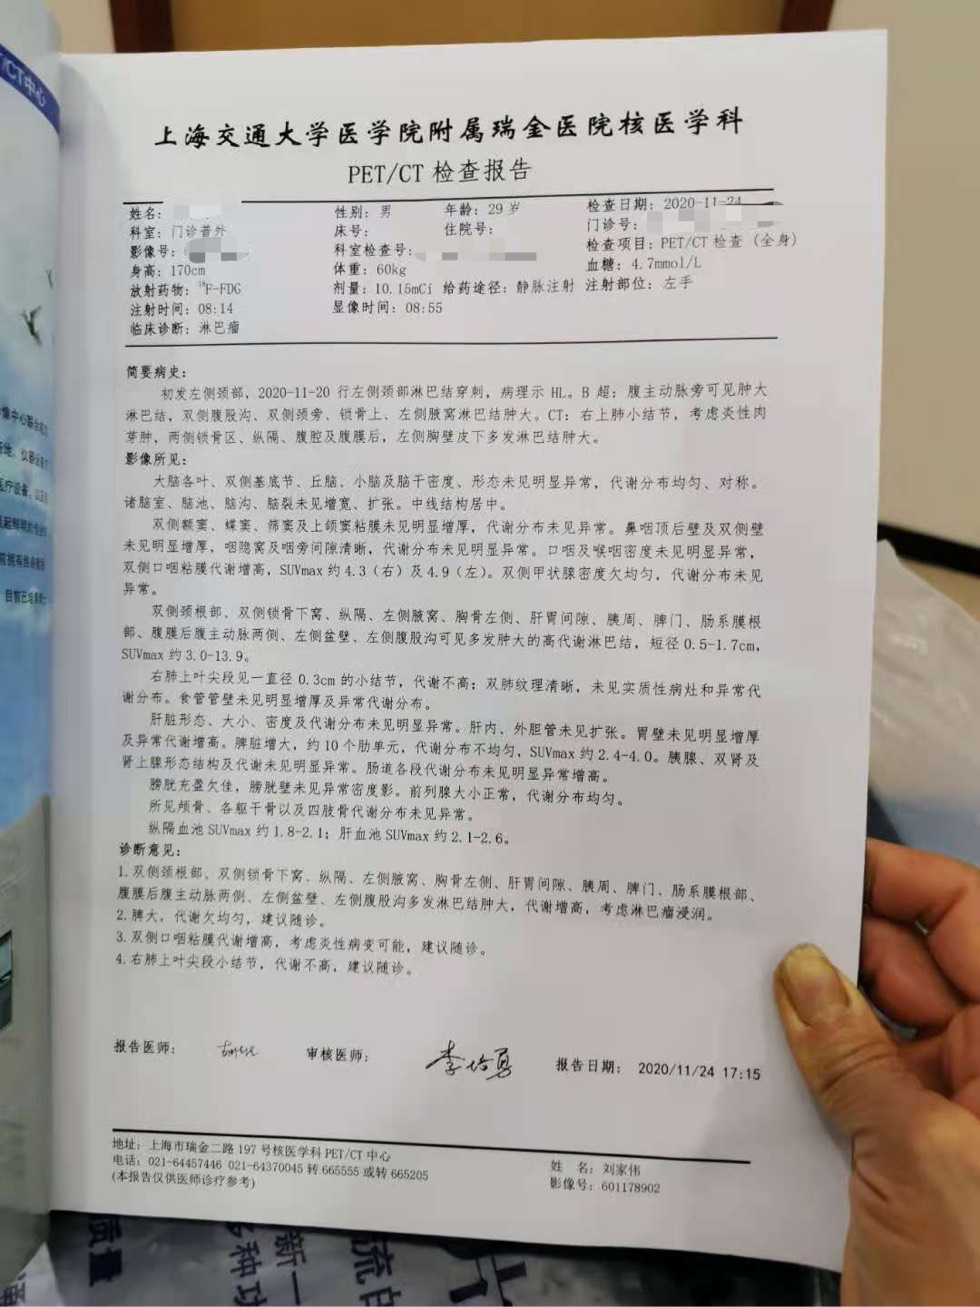 CT中心
上海交通大学医学院附属瑞金医院核医学科
PET/CT 检查报告
姓名: 性别: 男 年龄: 29 岁 检查日期: 2020-11-24
科室: 门诊普外 床号: 住院号: 门诊号:
影像号: 科室检查号: 检查项目: PET/CT 检查 (全身)
身高: 170cm 体重: 60kg 血糖: 4.7mmol/L
放射药物: ¹⁸F-FDG 剂量: 10.15mCi 给药途径: 静脉注射 注射部位: 左手
注射时间: 08:14 显像时间: 08:55
临床诊断: 淋巴瘤
简要病史:
初发左侧颈部, 2020-11-20 行左侧颈部淋巴结穿刺, 病理示 HL。B 超: 腹主动脉旁可见肿大
淋巴结, 双侧腹股沟、双侧颈旁、锁骨上、左侧腋窝淋巴结肿大。CT: 右上肺小结节, 考虑炎性肉
芽肿, 两侧锁骨区、纵隔、腹腔及腹膜后, 左侧胸壁皮下多发淋巴结肿大。
影像所见:
大脑各叶、双侧基底节、丘脑、小脑及脑干密度、形态未见明显异常, 代谢分布均匀、对称。
诸脑室、脑池、脑沟、脑裂未见增宽、扩张。中线结构居中。
双侧额窦、蝶窦、筛窦及上颌窦粘膜未见明显增厚, 代谢分布未见异常。鼻咽顶后壁及双侧壁
未见明显增厚, 咽隐窝及咽旁间隙清晰, 代谢分布未见明显异常。口咽及喉咽密度未见明显异常,
双侧口咽粘膜代谢增高, SUVmax 约 4.3 (右) 及 4.9 (左)。双侧甲状腺密度欠均匀, 代谢分布未见
异常。
双侧颈根部、双侧锁骨下窝、纵隔、左侧腋窝、胸骨左侧、肝胃间隙、胰周、脾门、肠系膜根
部、腹膜后腹主动脉两侧、左侧盆壁、左侧腹股沟可见多发肿大的高代谢淋巴结, 短径 0.5-1.7cm,
SUVmax 约 3.0-13.9。
右肺上叶尖段见一直径 0.3cm 的小结节, 代谢不高; 双肺纹理清晰, 未见实质性病灶和异常代
谢分布。食管管壁未见明显增厚及异常代谢分布。
肝脏形态、大小、密度及代谢分布未见明显异常。肝内、外胆管未见扩张。胃壁未见明显增厚
及异常代谢增高。脾脏增大, 约 10 个肋单元, 代谢分布不均匀, SUVmax 约 2.4-4.0。胰腺、双肾及
肾上腺形态结构及代谢未见明显异常。肠道各段代谢分布未见明显异常增高。
膀胱充盈欠佳, 膀胱壁未见异常密度影。前列腺大小正常, 代谢分布均匀。
所见颅骨、各躯干骨以及四肢骨代谢分布未见异常。
纵隔血池 SUVmax 约 1.8-2.1; 肝血池 SUVmax 约 2.1-2.6。
诊断意见:
1. 双侧颈根部、双侧锁骨下窝、纵隔、左侧腋窝、胸骨左侧、肝胃间隙、胰周、脾门、肠系膜根部、
腹膜后腹主动脉两侧、左侧盆壁、左侧腹股沟多发淋巴结肿大, 代谢增高, 考虑淋巴瘤浸润。
2. 脾大, 代谢欠均匀, 建议随诊。
3. 双侧口咽粘膜代谢增高, 考虑炎性病变可能, 建议随诊。
4. 右肺上叶尖段小结节, 代谢不高, 建议随诊。
报告医师: 审核医师: 李培勇 报告日期: 2020/11/24 17:15
地址: 上海市瑞金二路 197 号核医学科 PET/CT 中心
电话: 021-64457446 021-64370045 转 665555 或转 665205
(本报告仅供医师诊疗参考)
姓 名: 刘家伟
影像号: 601178902